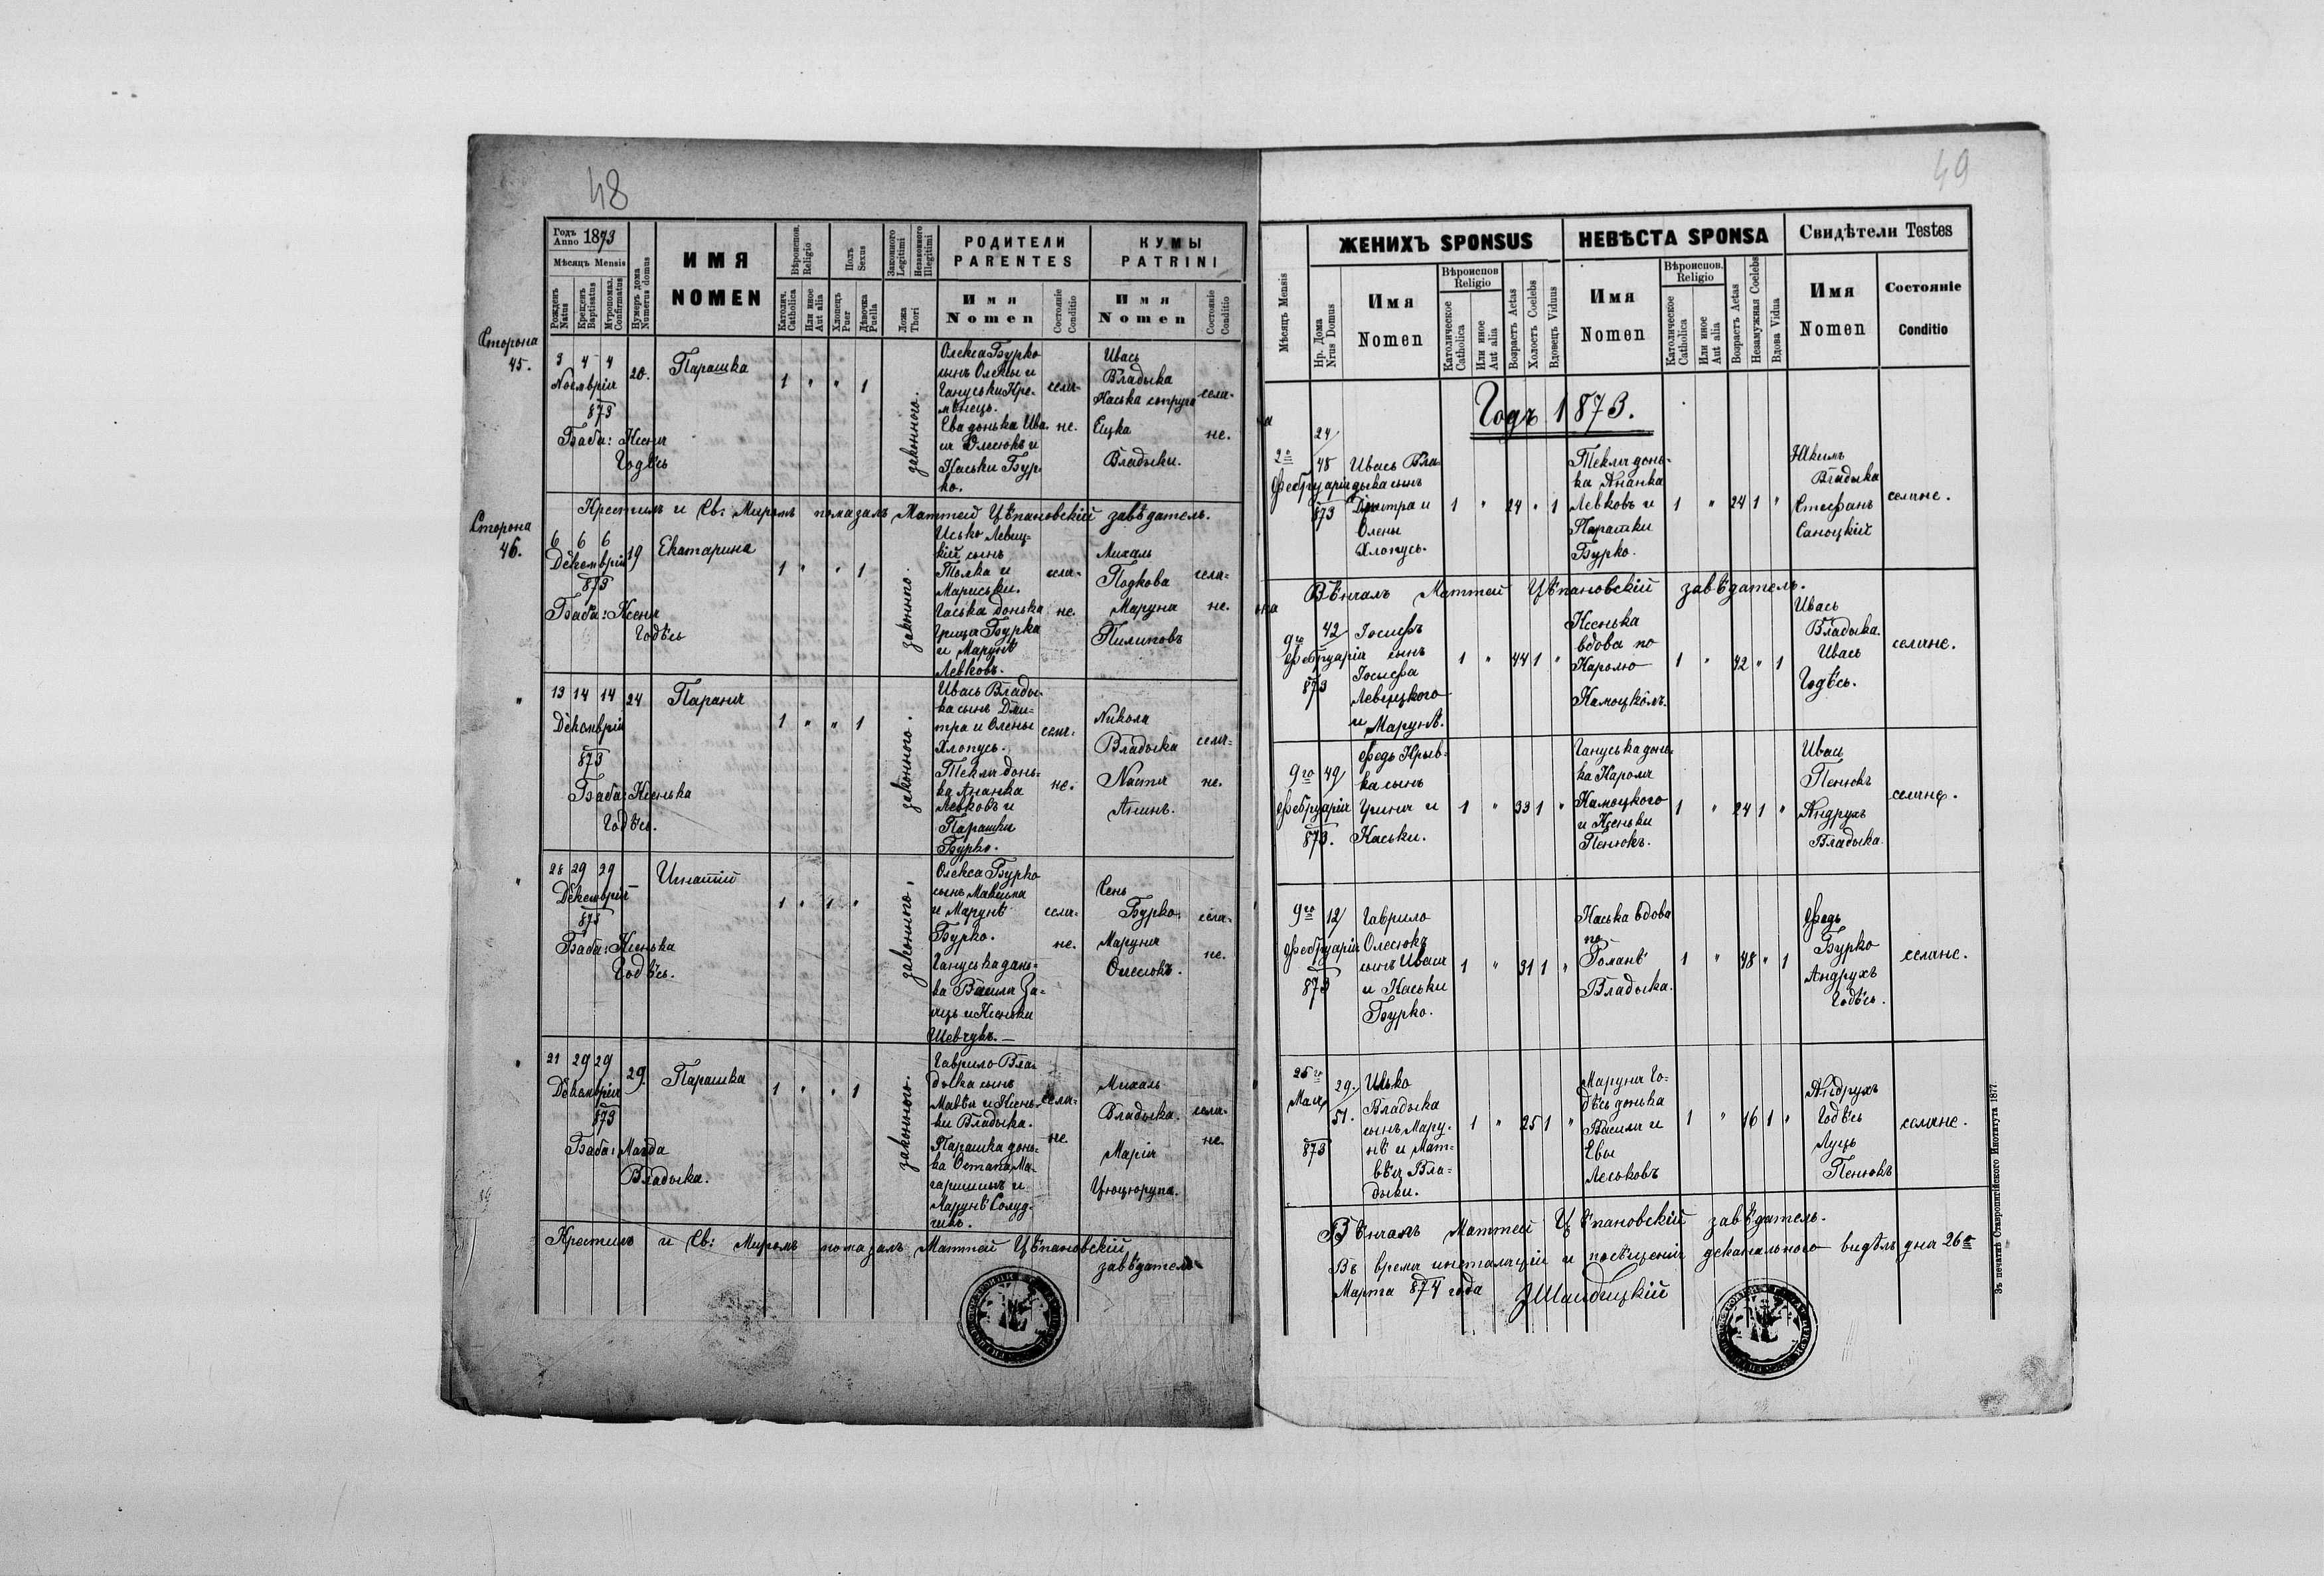 48
Годъ Anno 1873
Мѣсяцъ Mensis
Рожденъ Natus
Крещенъ Baptisatus
Мѵропомаз. Confirmatus
Нумеръ дома Numerus domus
ИМЯ
NOMEN
Вѣроиспов. Religio
Католич. Catholica
Или иное Aut alia
Полъ Sexus
Хлопецъ Puer
Дѣвочка Puella
Законного Legitimi
Незаконного Illegitimi
Ложа Thori
РОДИТЕЛИ
PARENTES
Имя
Nomen
Состояніе Conditio
КУМЫ
PATRINI
Имя
Nomen
Состояніе Conditio
Сторона
45.
3 4 4
Ноемврія
873
Баба: Ксеня
Годѣсь
20.
Парашка
1 " " 1
законного.
Олекса Бурко
сынъ Олексы и
Гануськи Кре-
мѣнець.
Ева донька Ива
ся Олесюкъ и
Каськи Бур-
ко.
селя-
не.
Ивась
Владыка
Каська супруга
Ецка
Владыки.
селя-
не.
Крестилъ и Св: Миромъ помазалъ Маттей Цѣпановскій завѣдатель.
Сторона
46.
6 6 6
Декемврія
873
Баба: Ксеня
Годѣсь
19
Екатарина
1 " " 1
законного.
Исько Левиц-
кій сынъ
Томка и
Мариськи.
Гаська донька
Грица Бурка
и Марунѣ
Левковъ.
селя-
не.
Михаль
Подкова
Маруня
Пилиповъ
селя-
не.
"
13 14 14
Декемврія
873
Баба: Ксенька
Годѣсь.
24
Параня
1 " " 1
законного.
Ивась Влады-
ка сынъ Дми-
тра и Олены
Хлопусь.
Текля донь-
ка Ананка
Левковъ и
Парашки
Бурко.
селя-
не.
Никола
Владыка
Настя
Ананъ.
селя-
не.
"
28 29 29
Декемврія
873
Баба: Ксенька
Годѣсь.
Игнатій
1 " 1 "
законного.
Олекса Бурко
сынъ Максима
и Марунѣ
Бурко.
Гануська донь-
ка Василя За-
яць и Ксеньки
Шевчукъ.
селя-
не.
Сень
Бурко
Маруня
Олесюкъ.
селя-
не.
"
21 29 29
Декемврія
873
Баба: Магда
Владыка.
29.
Парашка
1 " " 1
законного.
Гаврило Вла-
дыка сынъ
Мавѣя и Ксень-
ки Владыка.
Парашка донь-
ка Остапа Ма-
и
Марунѣ
селя-
не.
Михаль
Владыка.
Марія
Цюцюрупа.
селя-
не.
Крестилъ и Св: Миромъ помазалъ Маттей Цѣпановскій
завѣдатель
49
Мѣсяцъ Mensis
ЖЕНИХЪ SPONSUS
Нр. Дома Nrus Domus
Имя
Nomen
Вѣроиспов Religio
Католическое Catholica
Или иное Aut alia
Возрастъ Aetas
Холостъ Coelebs
Вдовецъ Viduus
НЕВѢСТА SPONSA
Имя
Nomen
Вѣроиспов. Religio
Католическое Catholica
Или иное Aut alia
Возрастъ Aetas
Незамужная Coelebs
Вдова Vidua
Свидѣтели Testes
Имя
Nomen
Состояніе
Conditio
Годъ 1873.
2го
Фебруарія
873
24/
48
Ивась Вла-
дыка сынъ
Дмитра и
Олены
Хлопусь.
1 " 24 " 1
Текля донь-
ка Ананка
Левковъ и
Парашки
Бурко.
1 " 24 1 "
Якимъ
Владыка
Стефанъ
Саноцкій
селяне.
Вѣнчалъ Маттей Цѣпановскій завѣдатель.
9го
Фебруарія
873
42/
Госифъ
сынъ
Госифа
Левицкого
и Марунѣ.
1 " 44 1 "
Ксенька
вдова по
Каролю
Камоцкомъ.
1 " 42 " 1
Ивась
Владыка.
Ивась
Годѣсь.
селяне.
9го
Фебруарія
873.
49/
Федь Крыв-
ка сынъ
Гриня и
Каськи.
1 " 33 1 "
Гануська донь-
ка Кароля
Камоцкого
и Ксеньки
Пенюкъ.
1 " 24 1 "
Ивась
Пенюкъ
Андрухъ
Владыка.
селяне.
9го
Фебруарія
873
12/
Гаврило
Олесюкъ
сынъ Ивася
и Каськи
Бурко.
1 " 31 1 "
Каська вдова
по
Романѣ
Владыка.
1 " 48 " 1
Федь
Бурко
Андрухъ
Годѣсь.
селяне.
25го
Мая
873
29.
51.
Илько
Владыка
сынъ Мару-
нѣ и Мат-
вѣя Вла-
дыки.
1 " 25 1 "
Маруня Го-
дѣсь донька
Василя и
Евы
Леськовъ
1 " 16 1 "
Андрухъ
Годѣсь
Луць
Пенюкъ
селяне.
Вѣнчалъ Маттей Цѣпановскій завѣдатель.
Въ время инсталяціи и посѣщенія деканального видѣлъ дня 26о
Марта 874 года
Зъ печатнѣ Ставропигійского Института 1877.